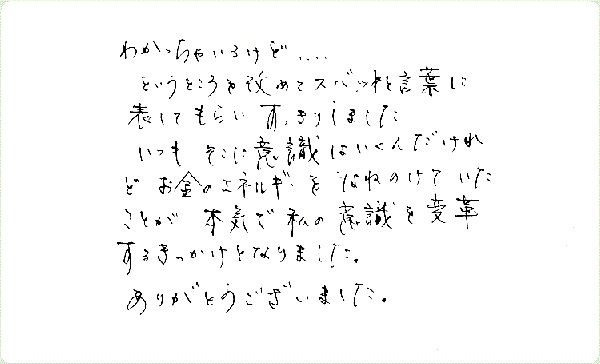 わかっちゃいるけど....
というところを改めてスパッと言葉に
表してもらいすっきりしました
いつもそこに意識はいくんだけれ
どお金のエネルギーをはねのけていた
ことが本気で私の意識を変革
するきっかけとなりました。
ありがとうございました。